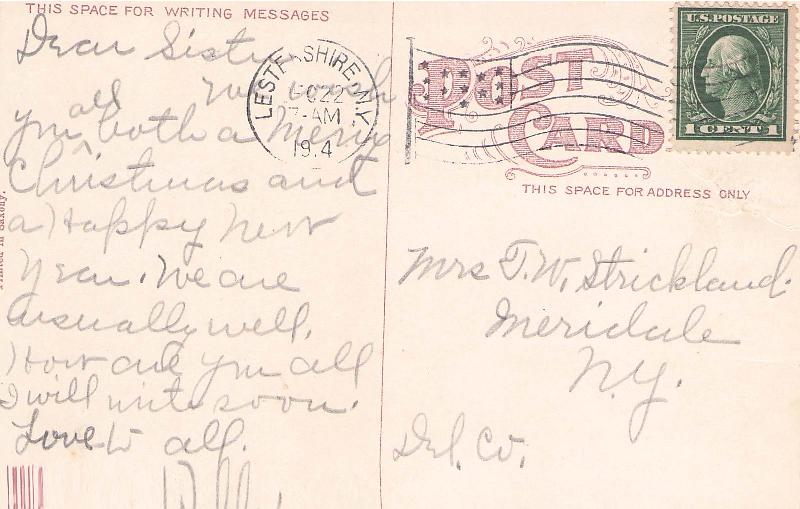 THIS SPACE FOR WRITING MESSAGES
Dear Sister
We wish
you all both a Merry
Christmas and
a Happy New
Year. We are
usually well.
How are you all
I will write soon.
Love to all.
Printed in Saxony.
LESTERSHIRE, N.Y.
DEC 22
7-AM
POST
CARD
U.S. POSTAGE
1 CENT 1
THIS SPACE FOR ADDRESS ONLY
Mrs T. W. Strickland.
Meridale
N.Y.
Del. Co.